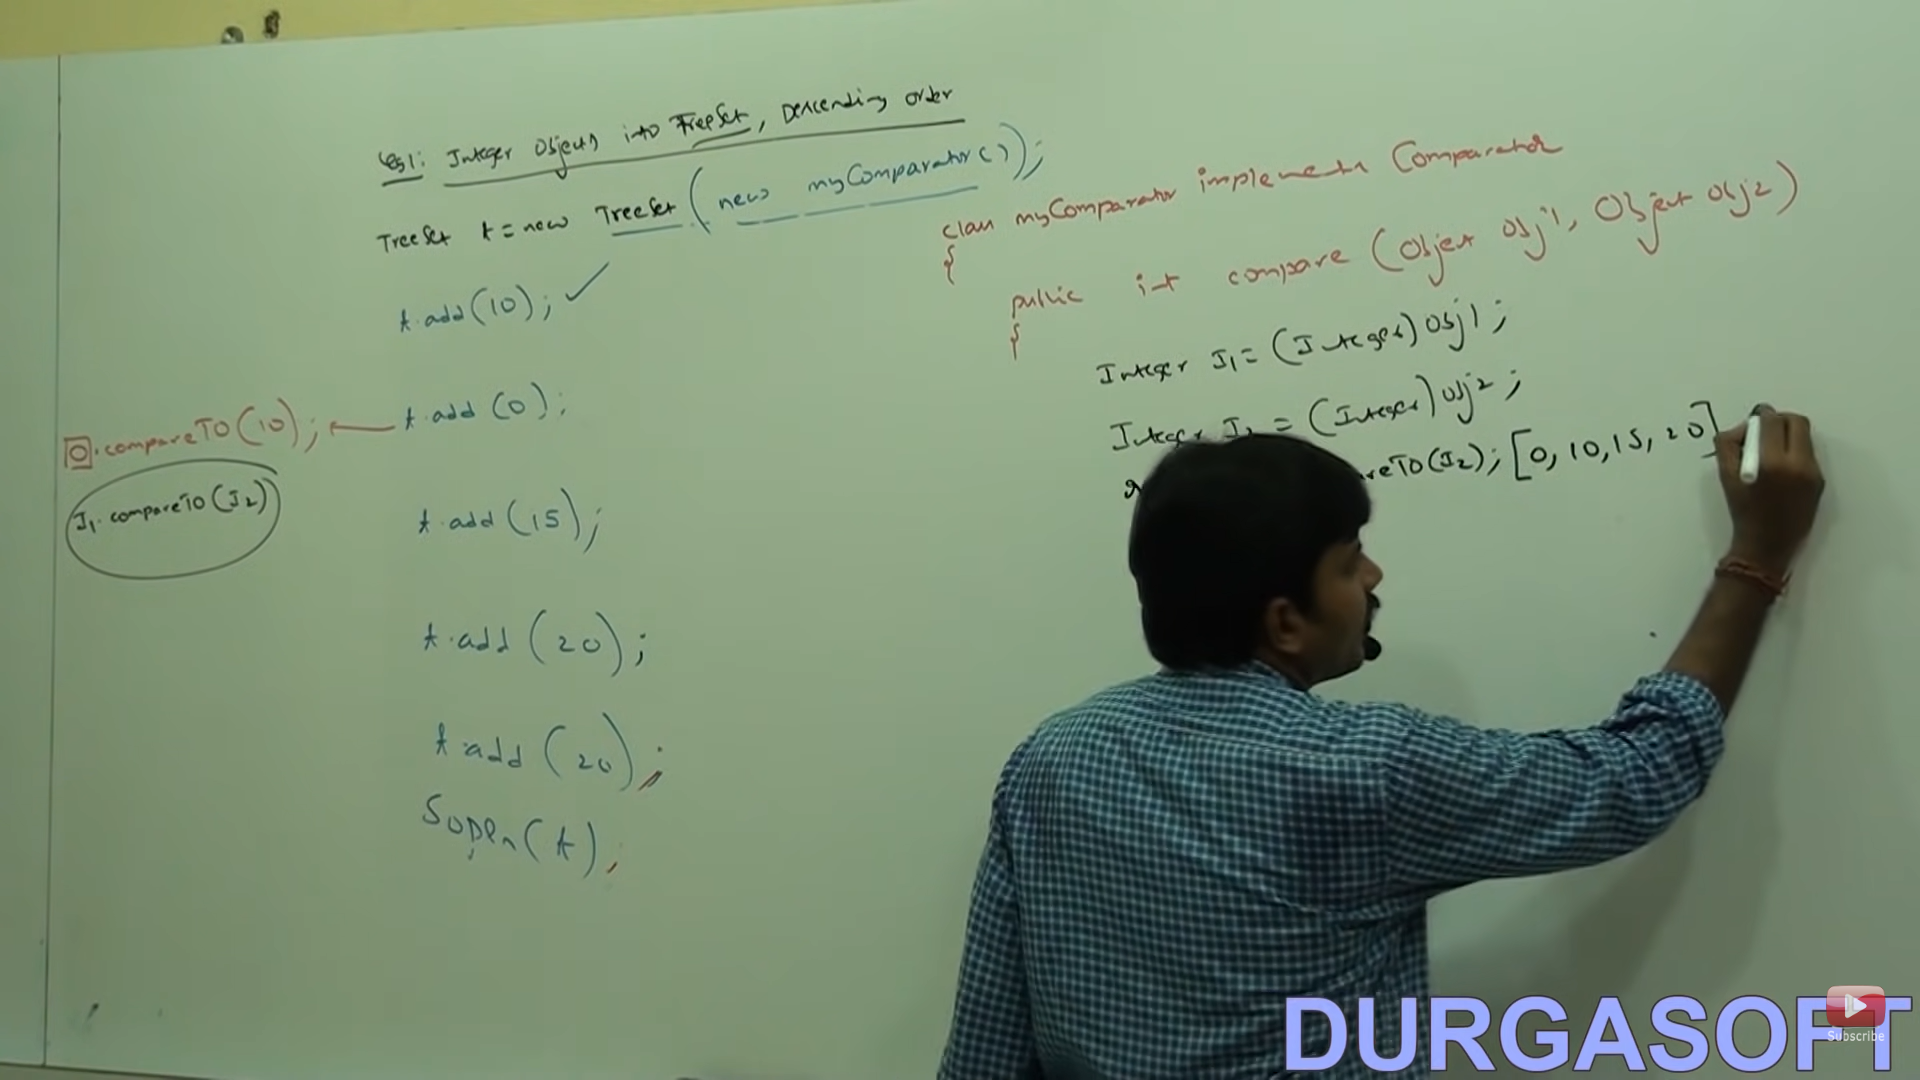 Eg1: Integer Objects into TreeSet, Descending order
TreeSet t = new TreeSet (new myComparator());
t.add(10); ✓
t.add(0);
0.compareTo(10); ←
I1.compareTo(I2)
t.add(15);
t.add(20);
t.add(20);
Sopln(t);
class myComparator implements Comparator
{
public int compare (Object obj1, Object obj2)
{
Integer I1 = (Integer) obj1;
Integer I2 = (Integer) obj2;
reTo(I2); [0, 10, 15, 20]
DURGASOFT
Subscribe